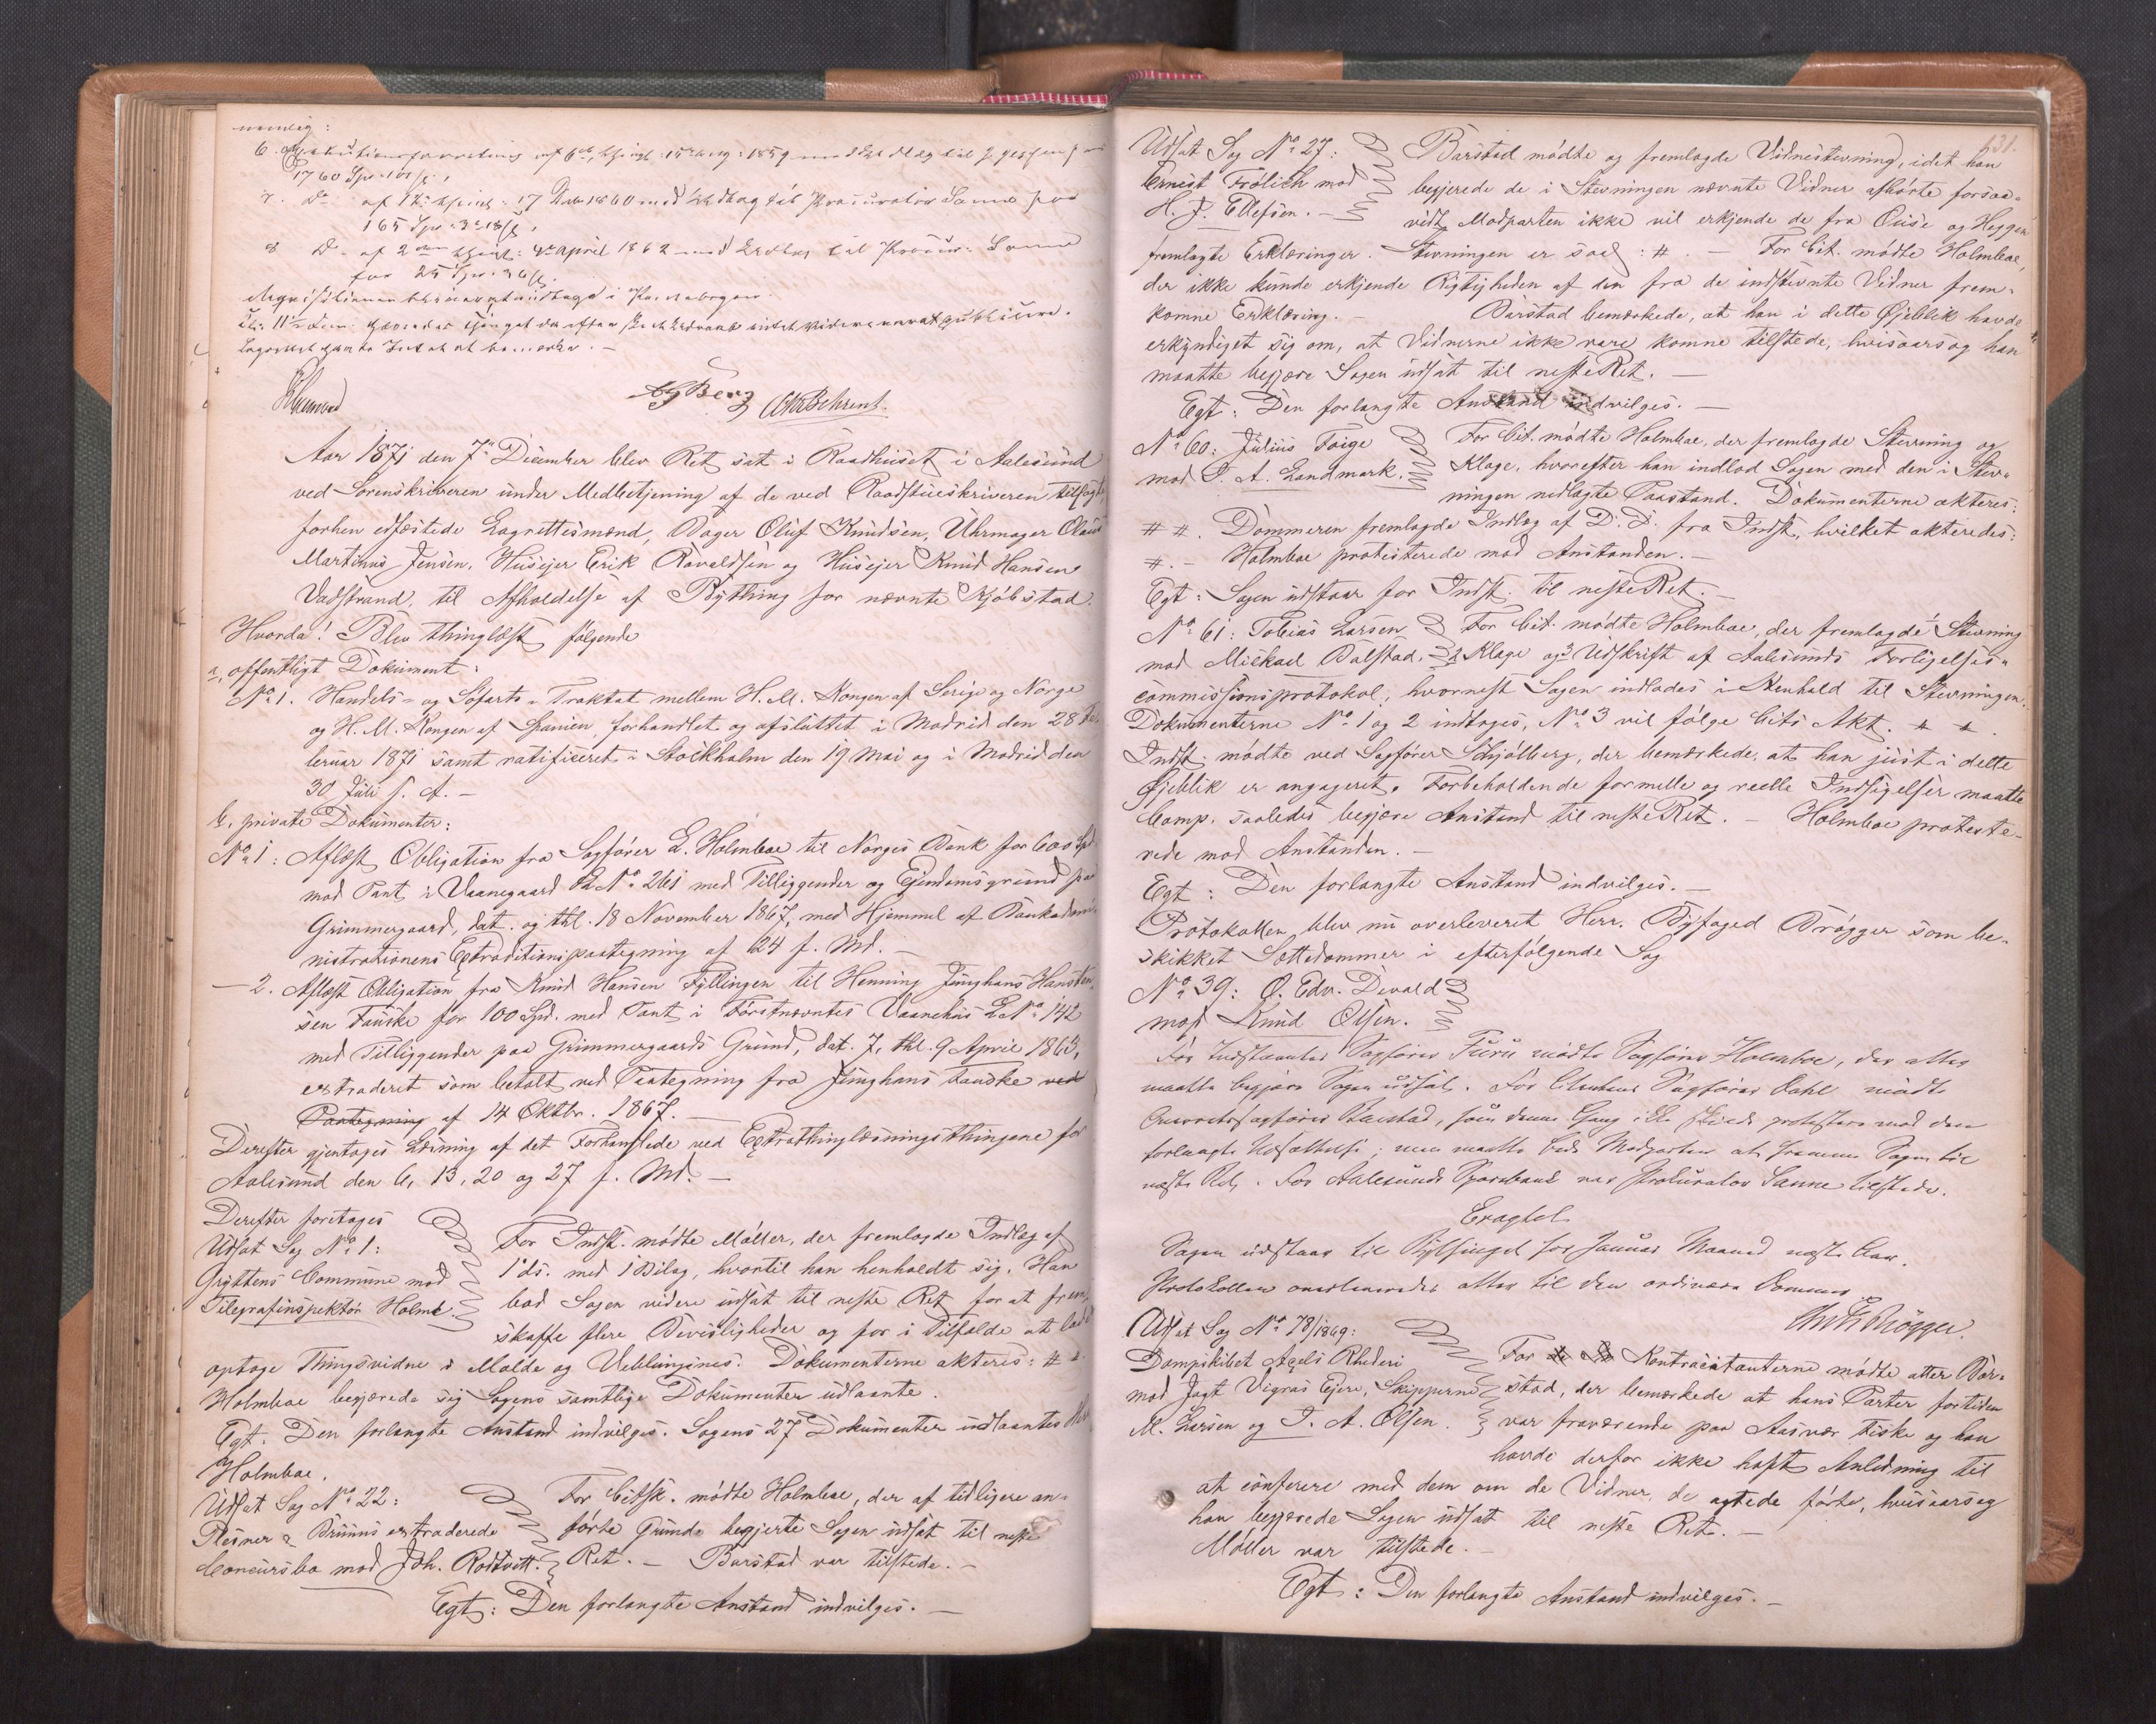 nemlig:
6. Executionsforretning af 6te, thingl: 15 Aug: 1859 med Udlæg til J. for
1760 Spd 101 ß,
7. Do af 12 thingl: 17 Dcbr 1860 med Udlæg til Procurator Sanne for
165 Spd 3 18 ß,
8 Do af 2den thingl: 4de April 1862 med Udlæg til Procur: Sanne
for 25 Spd 36 ß.
Kl: 11½ Form:
Lagrettet havde Intet at bemærke. —
A G Berg Behrens.
Aar 1871 den 7de December blev Ret sat i Raadhuset i Aalesund
ved Sorenskriveren under Medbetjening af de ved Raadstueskriveren tilsagte,
forhen edfæstede Lagrettesmænd, Bager Oluf Knudsen, Uhrmager Olaus
Martinus Jensen, Huseier Erik Ravaldsen og Huseier Knud Hansen
Vadstrand, til Afholdelse af Bything for nævnte Kjøbstad.
Hvorda: Blev thinglæst følgende
a, offentligt Dokument:
No 1. Handels- og Søfarts-Traktat mellem H. M. Kongen af Sverige og Norge
og H. M. Kongen af Spanien, forhandlet og afsluttet i Madrid den 28 Fe-
bruar 1871 samt ratificeret i Stockholm den 19 Mai og i Madrid den
30 Juli s. A. —
b, private Dokumenter:
No 1: Aflæst Obligation fra Sagfører L. Holmboe til Norges Bank for 600 Spd.
mod Pant i Vaanegaard L No 261 med Tilliggender og Eiendomsgrund paa
Grimmergaard, dat. og thl. 18 November 1867, med Hjemmel af Bankadmi-
nistrationens Extraditionspaategning af 24 f. Md. —
— 2. Aflæst Obligation fra Knud Hansen Fyllingen til Henning Junghans Hansten-
sen Fauske for 100 Spd. med Pant i Førstnævntes Vaanehus L No 142
med Tilliggender paa Grimmergaards Grund, dat. 7, thl. 9 April 1863,
extraderet som betalt ved Paategning fra Junghans Fauske ved
Paategning af 14 Oktbr. 1867. —
Derefter gjentoges Læsning af det Forhenfløde ved Extrathinglæsningsthingene for
Aalesund den 6, 13, 20 og 27 f. Md. —
Derefter foretoges
Udsat Sag No 1:
Gryttens Commune mod
Telegrafinspektør Holme.
For Indst. møtte Møller, der fremlagde Indlæg af
1 ds. med 1 Bilag, hvortil han henholdt sig. Han
bad Sagen videre udsat til neste Ret for at frem-
skaffe flere Bevisligheder og for i Tilfælde at lade
optage Thingsvidne i Molde og Veblungsnes. Dokumenterne akteres: # #.
Holmboe begjærede sig Sagens samtlige Dokumenter udlaante.
Egt. Den forlangte Anstand indvilges. Sagens 27 Dokumenter udlaantes Hr
Holmboe.
Udsat Sag No 22:
Plesner & Bruuns extraderede
Concursbo mod Joh. Rodtvitt.
For Citsk. mødte Holmboe, der af tidligere an-
førte Grunde begjerte Sagen udsat til neste
Ret. — Barstad var tilstede. —
Egt: Den forlangte Anstand indvilges. —
131.
Udsat Sag No 27:
Ernest Frølich mod
H. J. Ellefsen. —
Barstad mødte og fremlagde Vidnestevning, idet han
begjerede de i Stevningen nævnte Vidner afhørte forsaa-
vidt Modparten ikke vil erkjende de fra Ouse og Heggen
fremlagte Erklæringer. Stevningen er saa: #. — For Cit. mødte Holmboe,
der ikke kunde erkjende Rigtigheden af den fra de indstevnte Vidner frem-
komne Erklæring. — Barstad bemærkede, at han i dette Øjeblik havde
erkyndiget sig om, at Vidnerne ikke vare komne tilstede, hvisaarsag han
maatte begjere Sagen udsat til neste Ret. —
Egt: Den forlangte Anstand indvilges. —
No 60: Julius Foige
mod P. A. Landmark.
For Cit. mødte Holmboe, der fremlagde Stevning og
Klage, hvorefter han indlod Sagen med den i Stev-
ningen nedlagte Paastand. Dokumenterne akteres:
# #. Dommeren fremlagde Indlæg af D. D. fra Indst., hvilket akteredes:
#. — Holmboe protesterede mod Anstanden. —
Egt: Sagen udstaar for Indst. til neste Ret. —
No 61: Tobias Larsen
mod Mickael Dalstad.
For Cit. mødte Holmboe, der fremlagde 1 Stevning
2 Klage og 3 Udskrift af Aalesunds Forligelses-
commissionsprotokol, hvornest Sagen indlodes i Henhold til Stevningen.
Dokumenterne No 1 og 2 indtages, No 3 vil følge Cits Akt. # #.
Indst. mødte ved Sagfører Schjølberg, der bemærkede, at han just i dette
Øjeblik er angageret. Forbeholdende formelle og reelle Indsigelser maatte
Comp. saaledes begjere Anstand til neste Ret. — Holmboe proteste-
rede mod Anstanden. —
Egt: Den forlangte Anstand indvilges. —
Protokollen blev nu overleveret Herr. Byfoged Brøgger som be-
skikket Sættedommer i efterfølgende Sag
No 39: O. Edv. Devold
mod Knud Olsen.
For Indstævnte Sagfører Furu mødte Sagfører Holmboe, der atter
maatte begjære Sagen udsat. For Citanten Sagfører Dahl mødte
Overretssagfører Barstad, som denne Gang ikke skulde protestere mod den
forlangte Udsættelse; men maatte bede Modparten at fremme Sagen til
næste Ret. For Aalesunds Sparebank var Prokurator Sanne tilstede.
Eragtet
Sagen udstaar til Bythinget for Januar Maaned næste Aar.
Protokollen overleveredes atter til den ordinære Dommer.
Brøgger.
Udsat Sag No 78/1869:
Dampskibet Axels Rhederi
mod Jagt Vigras Ejere, Skipperne
M. Larsen og P. A. Olsen.
For Kontracitanterne mødte atter Bar-
stad, der bemærkede at hans Parter fortiden
var fraværende paa Aasvær Fiske og han
havde derfor ikke haft Anledning til
at conferere med dem om de Vidner, de agtede førte, hvisaarsag
han begjerede Sagen udsat til neste Ret. —
Møller var tilstede. —
Egt: Den forlangte Anstand indvilges. —